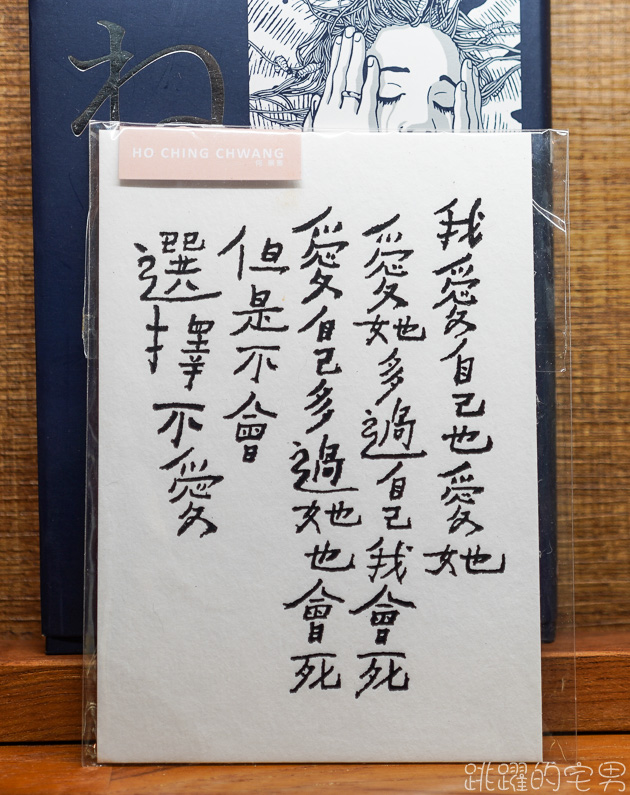 ね
HO CHING CHWANG
我愛自己也愛她
愛她多過自己我會死
愛自己多過她也會死
但是不會
選擇不愛
跳躍的宅男